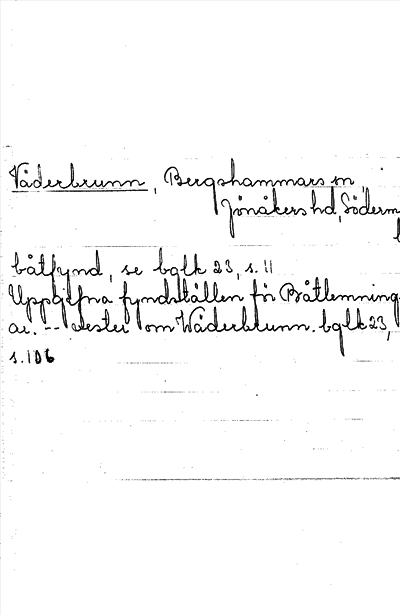 Våderbrunn, Bergshammars sn,
Jönåkers hd, Söderm
båtfynd, se bglk 23, s. 11
Uppgifna fyndställen för Båtlemning-
ar. -- vester om Wåderbrunn. bglk 23,
s. 106